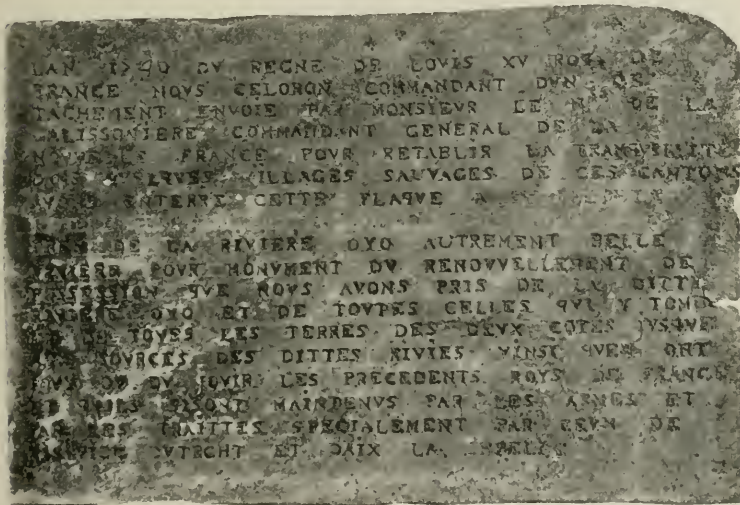 LAN 1749 DV REGNE DE LOVIS XV ROY DE
FRANCE NOVS CELORON COMMANDANT DVN DE
TACHEMENT ENVOIE PAR MONSIEVR LE MIS DE LA
GALISSONIERE COMMANDANT GENERAL DE LA
NOUVELLE FRANCE POVR RETABLIR LA TRANQVILLITE
DANS QVELQVES VILLAGES SAUVAGES DE CES CANTONS
AVONS ENTERRE CETTE PLAQVE A
PRES DE LA RIVIERE OYO AUTREMENT BELLE
RIVIERE POVR MONVMENT DV RENOVVELLEMENT DE
POSSESSION QVE NOVS AVONS PRIS DE LA DITTE
RIVIERE OYO ET DE TOVTES CELLES QVI Y TOMB
DE TOVES LES TERRES DES DEVX COTES JVSQVE
SOVRCES DES DITTES RIVIES VINSI QVEN ONT
OV DV JOVIR LES PRECEDENTS ROYS DE FRANCE
MAINDENVS PAR LES ARMES ET
PAR LES TRAITTES SPECIALEMENT PAR CEVX DE
RISVVICK VTRCHT ET DAIX LA CHAPELLE